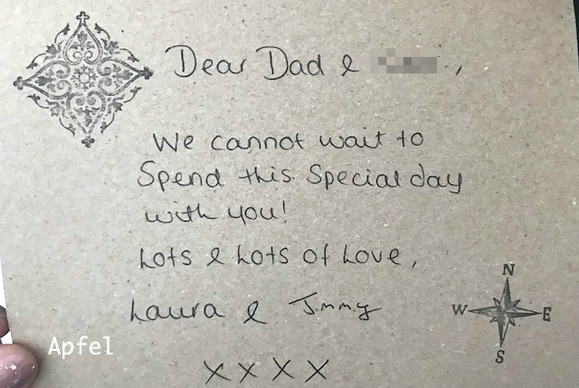 Dear Dad &
We cannot wait to
Spend this Special day
with you!
Lots & Lots of Love,
Laura & Jimmy
x x x x
N
W E
S
Apfel